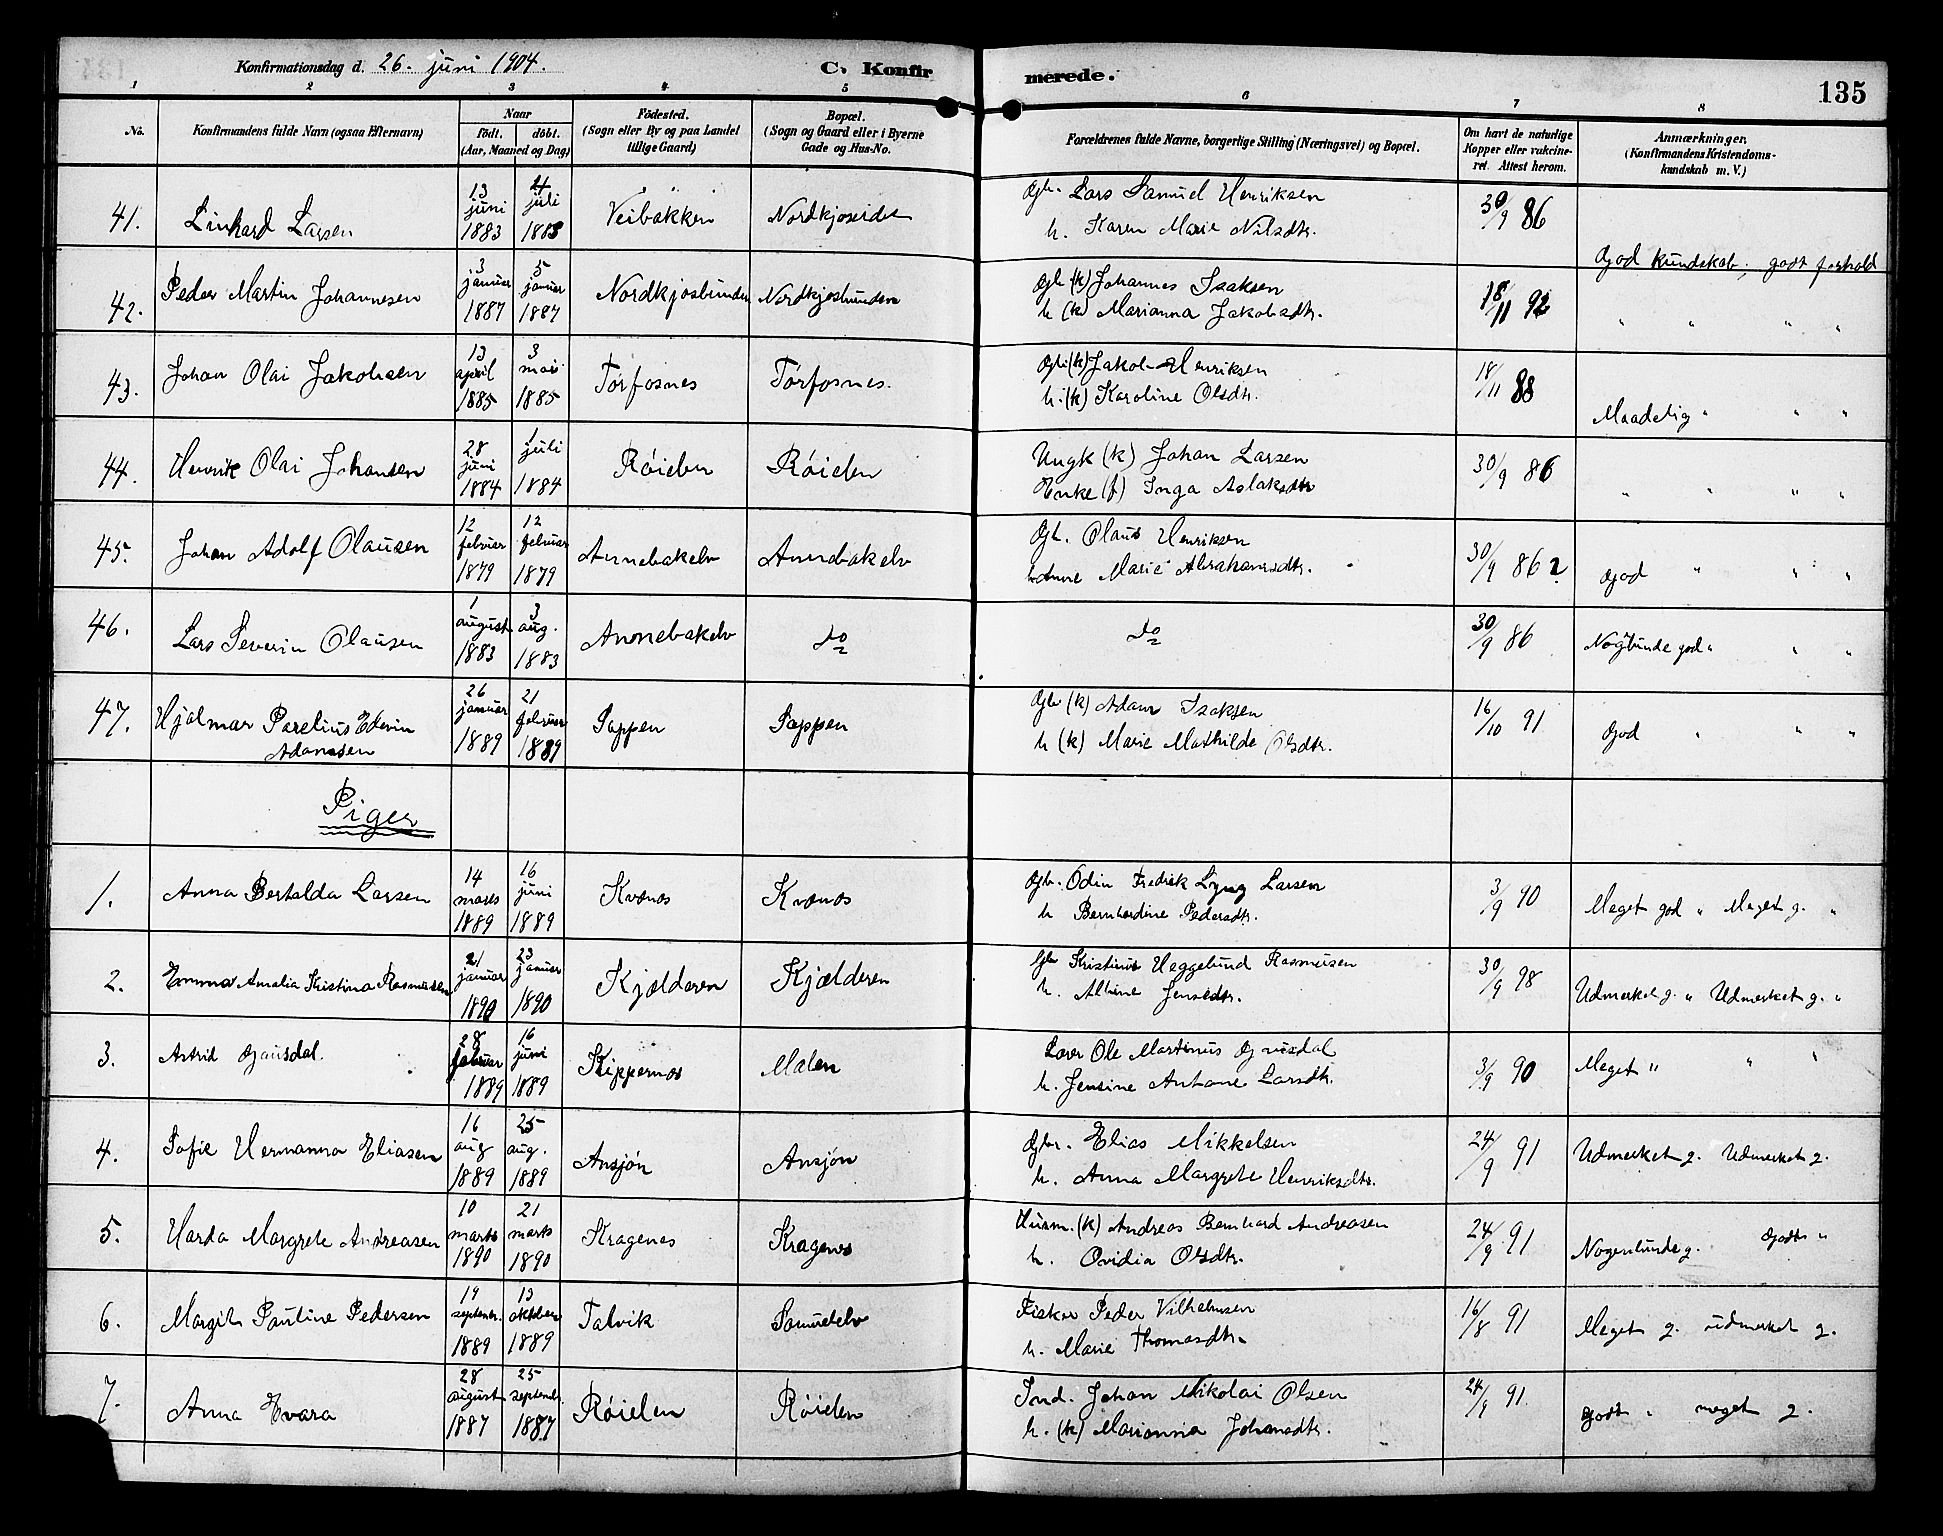 Konfirmationsdag d. 26. juni 1904. C. Konfirmerede. 135
1 2 3 4 5 6 7 8
No. Konfirmandens fulde Navn (ogsaa Efternavn) Naar födt. döbt. (Aar, Maaned og Dag) Födested. (Sogn eller By og paa Landet tillige Gaard) Bopæl. (Sogn og Gaard eller i Byerne Gade og Hus-No. Forældrenes fulde Navne, borgerlige Stilling (Næringsvei) og Bopæl. Om havt de naturlige Kopper eller vakcineret. Attest herom. Anmærkninger. (Konfirmandens Kristendomskundskab m. V.)
41. Linhard Larsen 13 juni 1883 juli 1883 Veibakken Nordkjoseidet Gbr. Lars Samuel Henriksen
h. Karen Marie Nilsdtr. 30/9 86 God kundskab, godt forhold
42. Peder Martin Johannesen 3 januar 1887 5 januar 1887 Nordkjosbunden Nordkjosbunden Gbr (k) Johannes Isaksen
h (k) Marianna Jakobsdtr. 18/11 92 " " " "
43. Johan Olai Jakobsen 13 april 1885 3 mai 1885 Tørfosnes Tørfosnes. Gbr (k) Jakob Henriksen
h. (k) Karoline Olsdtr. 18/11 88 Maadelig " " "
44. Henrik Olai Johansen 28 juni 1884 1 juli 1884 Røielen Røielen Ungk (k) Johan Larsen
Enke (f) Inga Aslaksdtr 30/9 86 " " " "
45. Johan Adolf Olausen 12 februar 1879 12 februar 1879 Annebakelv Annebakelv Gbr. Olaus Henriksen
h. Anne Marie Abrahamsdtr. 30/9 86? God " " "
46. Lars Severin Olausen 1 august 1883 3 aug. 1883 Annebakelv do do 30/9 86 Nogenlunde god " " "
47. Hjalmar Parelius Edevin
Adamsen 26 januar 1889 21 februar 1889 Sappen Sappen Gbr (k) Adam Isaksen
h (k) Marie Mathilde Olsdtr. 16/10 91 God " " "
Piger
1. Anna Bertalda Larsen 14 marts 1889 16 juni 1889 Kvænes Kvænes Gbr. Odin Fredrik Lyng Larsen
h Bernhardine Pedersdtr. 3/9 90 Meget god " Meget g. "
2. Emma Amalia Kristina Rasmussen 21 januar 1890 23 januar 1890 Kjælderen Kjælderen Gbr Kristinus Heggelund Rasmusen
h. Albine Jensdtr. 30/9 98 Udmerket g. " Udmerket g. "
3. Astrid Gausdal. 28 februar 1889 16 juni 1889 Skippernes Malen Lærer Ole Martinus Gausdal
h. Jensine Antone Larsdtr. 3/9 90 Meget " " "
4. Sofie Hermanna Eliasen 16 aug 1889 25 aug. 1889 Ansjøn Ansjøn Gbr. Elias Mikkelsen
h. Anna Margrete Henriksdtr. 24/9 91 Udmerket g. Udmerket g.
5. Harda Margrete Andreasen 10 marts 1890 21 marts 1890 Kragenes Kragenes Husm. (k) Andreas Bernhard Andreasen
h. Ovidia Olsdtr. 24/9 91 Nogenlunde g. Godt "
6. Margit Pauline Pedersen 19 septembr. 1889 13 oktober 1889 Talvik Samuelelv Fisker Peder Vilhelmsen
h. Marie Thomasdtr. 16/8 91 Meget g. udmerket g.
7. Anna Evara 28 august 1887 25 septembr. 1887 Røielen Røielen Ind. Johan Nikolai Olsen
h. (k) Marianna Johansdtr. 24/9 91. Godt " meget g.